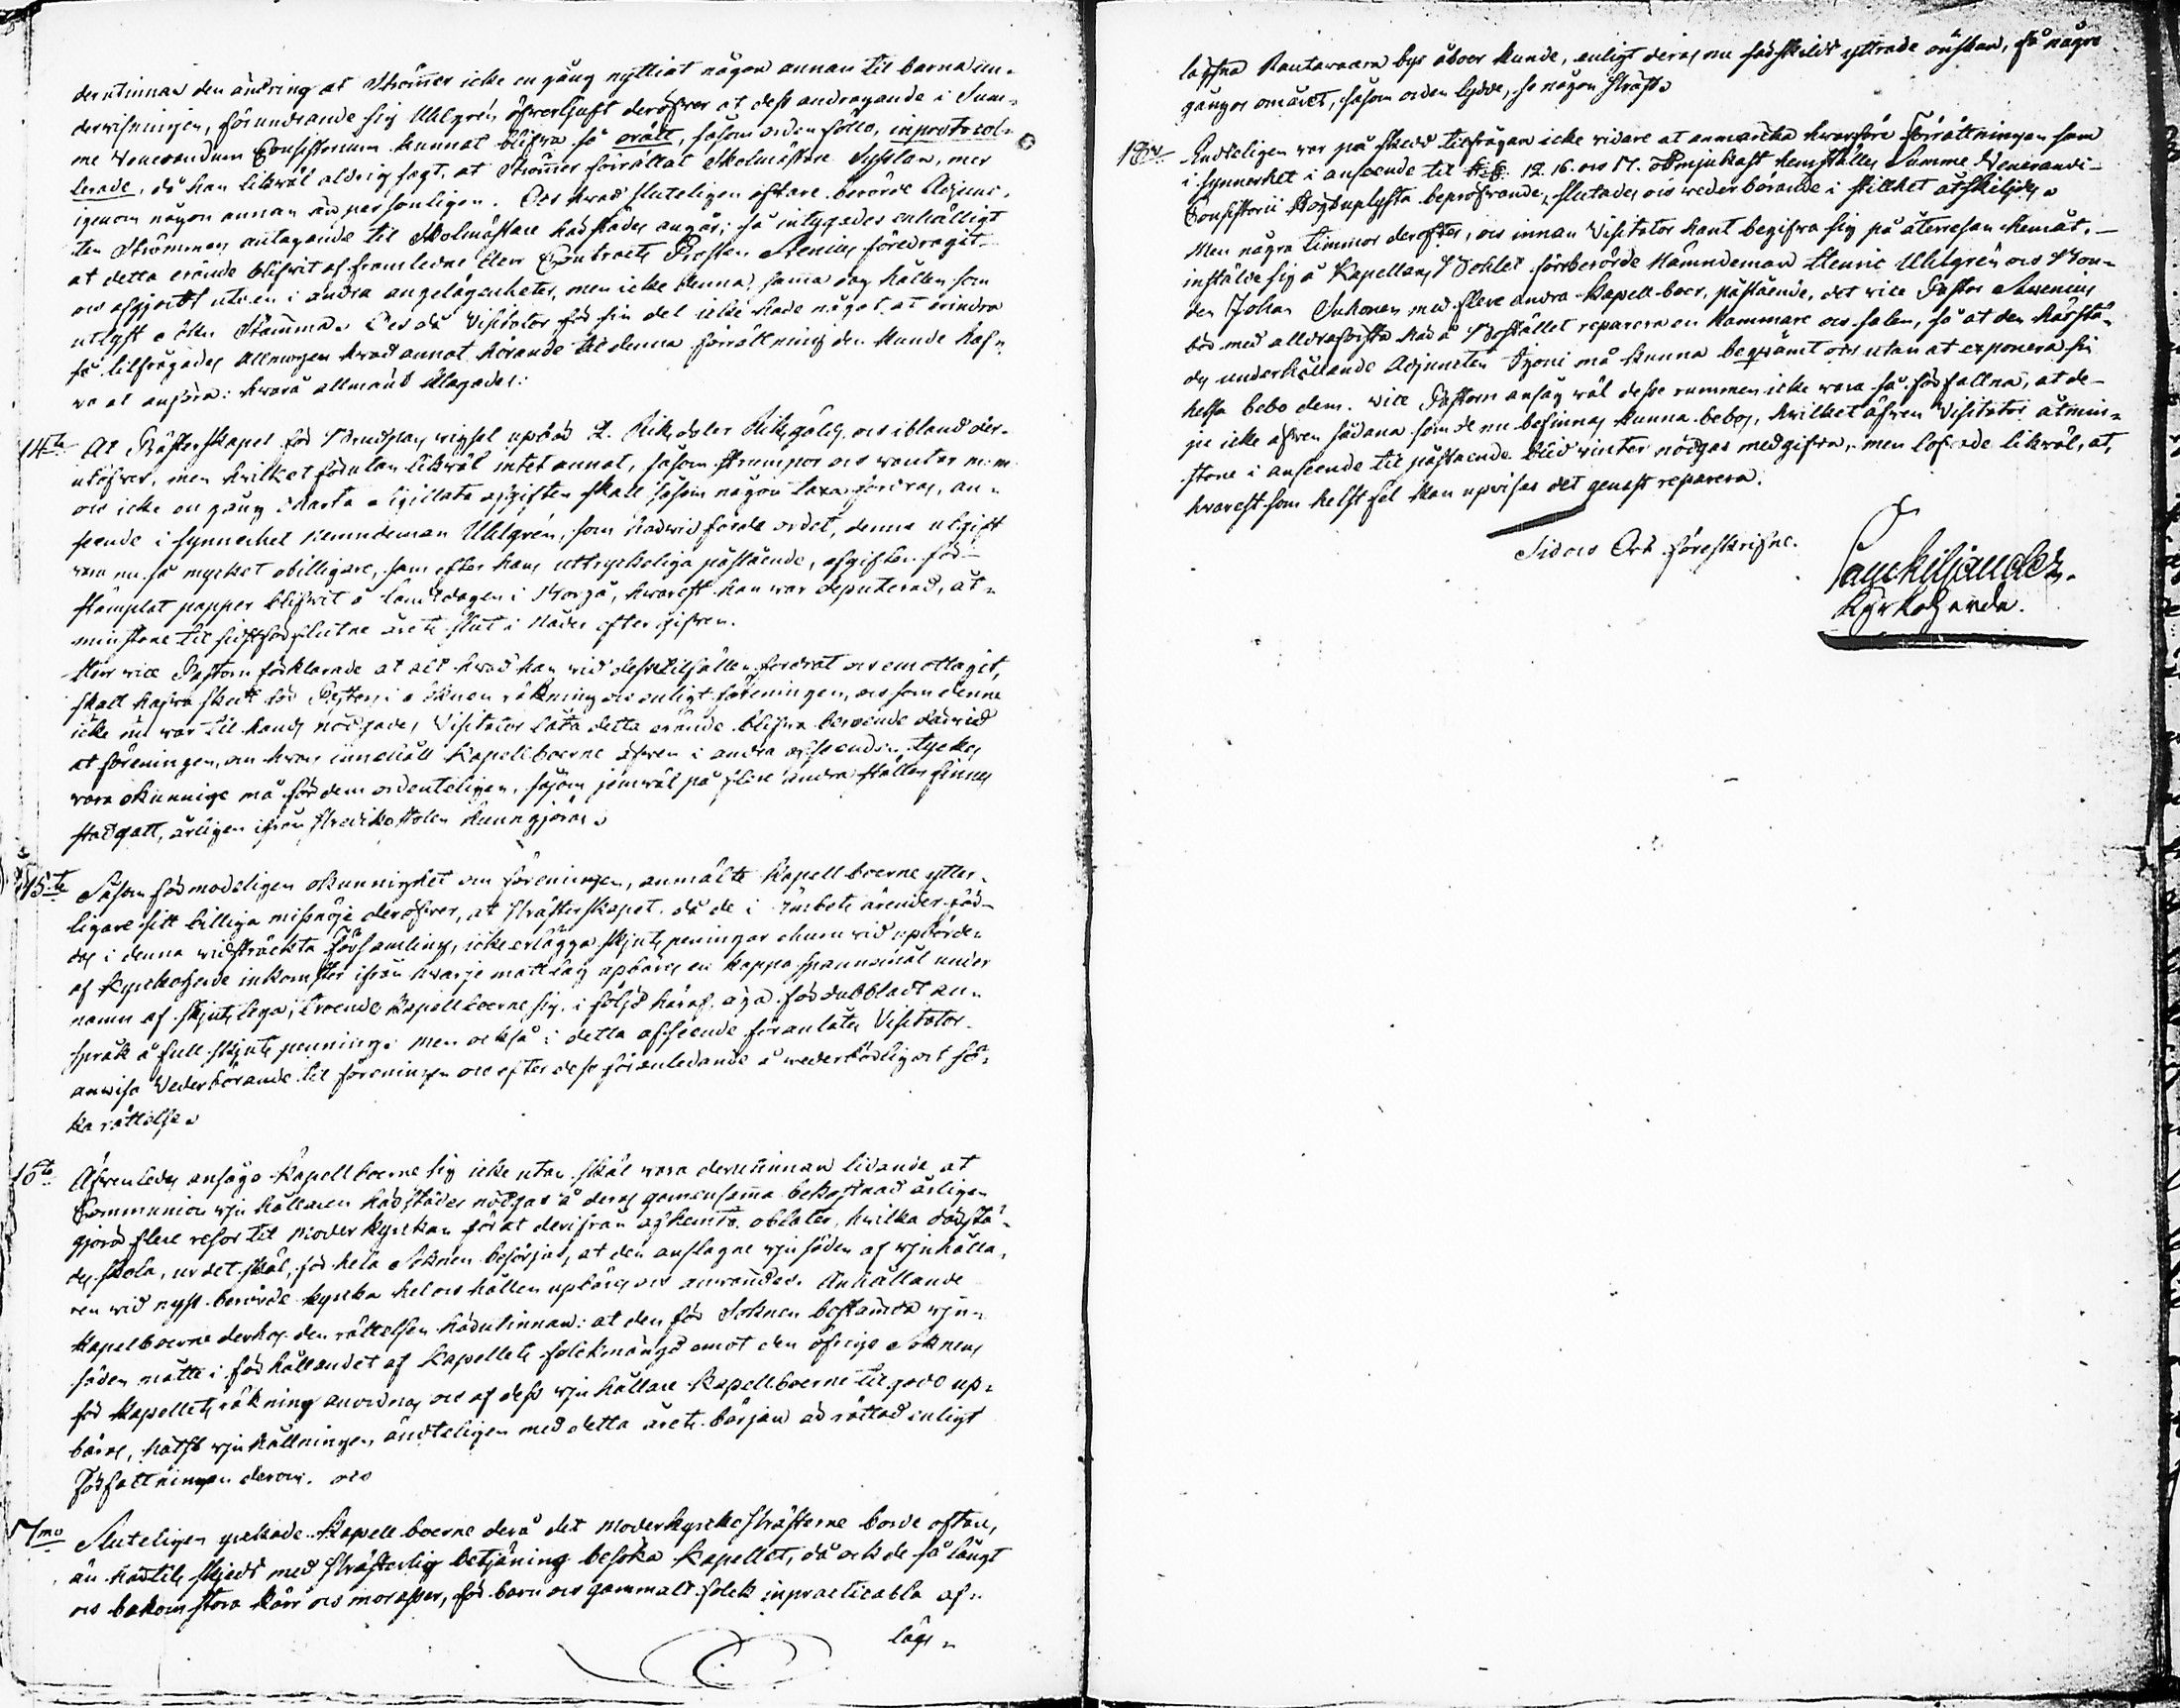 derutinnan den ändring at Strömmer icke en gång nyttiat någon annan til barna un-
derwisningen, förundrande sig Uhlgrén öfwerljust deröfwer at dess andragande i Sum-
me Venerandum Consistorium kunnat blifwa så orätt, såsom orden follo, inprotocol-
lerade, då han likwäl aldrig sagt, at Strömmer förrättat Skolmästare Sysslan, mer
igenom någon annan än personligen. Ock hwad sluteligen oftare berörde Adjunc-
ten Strömmers antagande til Skolmästare härstädes angår; så intygades enhälligt
at detta erände blifwit af framledne Herr Contracts Prosten Stenius föredragit
ock afgjordt uti en i andra angelägenheter, men icke denna, samma dag hållen som
utlyst Sockne Stämma. Ock då Visitator för sin del icke hade något at erindra
så tilfrågades Allmogen hwad annat hörande til denna förrättning den kunde haf-
wa at anföra: hwarå allmänt klagades:
14de At Prästerskapet för Brudpars wigsel upbär 2. Riksdaler Riksgälds ock ibland der-
utöfwer, men hwilket förutan likwäl intet annat, såsom strumpor ock wantar m: m
ock icke en gång Charta Sigillata afgiften skall såsom någon taxa fordras, an-
seende i synnerhet Nemndeman Uhlgrén, som härwid förde ordet, denna utgift
wara nu så mycket obilligare, som efter hans uttryckeliga påstående, afgiften för
stämplat papper blifwit å landtdagen i Borgå, hwarest han war deputerad, åt-
minstone til sistförflutne årets slut i Nåder eftergifwen.
Herr vice Pastorn förklarade at alt hwad han wid desse tilfällen fordrat ock emottagit,
skall hafwa skedt för Pastors räkning ock enligt föreningen, ock som denne
icke nu war til hands nödgades Visitator låta detta erände blifwa beroende därwid
at föreningen, om hwars innehåll Kapellboerne äfwen i andra afseenden tyckes
wara okunnige må för dem ordenteligen, såsom jemwäl på flere andra ställen finnes
stadgatt, årligen ifrån Predikostolen kungjöras.
15de Såsom förmodeligen okunnighet om föreningen, anmälte Kapellboerne ytter-
ligare sitt billiga missnöje deröfwer, at Prästerskapet då de i Ämbets ärender fär-
das i denna widsträckta församling, icke erlägga skjutspeningar ehuru wid upbörden
af Kyrkoherde inkomster ifrån hwarje matlag upbäres en kappa spannemål under
namn af skjutslega; troende Kapellboerne sig i följd häraf äga fördubbladt an-
språk å full skjuts penning: men också i detta afseende föranläts Visitator
anwisa Wederbörande til föreningen ock efter dess föranledande å wederbörlig ort sö-
ka rättelse.
16de Äfwenledes ansågo Kapellboerne sig icke utan skäl wara derutinnan lidande at
Communion win hållaren härstädes nödgas å deras gemensamma bekostnad årligen
gjöra flere resor til Moderkyrkan för at derifrån afhemta oblater, hwilka därstä-
des skola, ur det skäl, för hela Soknen besörjas, at den anslagne winsäden af winhålla-
ren wid nyss berörde kyrka hel ock hållen upbäres ock anwändes. Anhållande
Kapellboerne derhos den rättelsen härutinnan: at den för Soknen bestämda win-
säden måtte i förhållandet af Kapellets folckmängd emot den öfrige Soknens
för Kapellets räkning anordnas ock af dess win hållare Kapellboerne til godo up-
bäras, hälst winhållningen, ändteligen med detta årets början är rättad enligt
Författningen derom. ock
17mo Sluteligen yrkade Kapellboerne derå det Moderkyrko Prästerne borde oftare,
än härtils skjedt med Prästerlig betjäning besöka Kapellet, då ock de så långt
ock bakom stora kärr ock morasser, för barn ock gammalt folck inpracticabla af-
lägs-
lägsna Rautavaara bys åboer kunde, enligt deras nu särskildt yttrade önskan, få några
gångor om året, såsom orden lydde, se någon Präst.
18de Ändteligen war på skedd tilfrågan icke widare at anmärka hwarföre Förrättningen som
i synnerhet i anseende til §.§. 12. 16. ock 17. ödmjukast hemställes Summe Venerandi
Consistorii Högtuplysta bepröfwande, slutades ock wederbörande i stillhet åtskiljdes.
Men några timmar derefter, ock innan Visitator hant begifwa sig på återresan hemåt,
instälde sig å Kapellans Bohlet förrberörde Nämndeman Henric Uhlgrén ock Bon-
den Johan Juhonen med flere andra Kapell-boer, påstående, det vice Pastor Savenius
bör med alldraförsta här å Bostället reparera en kammare ock salen, så at den härstä-
des underhållande Adjuncten Ticoni må kunna beqwämt ock utan at exponera sin
helsa bebo dem. vice Pastorn ansåg wäl desse rummen icke wara så förfallne, at de
ju icke äfwen sådana som de nu befinnas kunna bebos, hwilket äfwen Visitator åtmin-
stone i anseende til påstående blid winter nödgas medgifwa, men lofwade likwäl, at,
hwarest som helst fel kan upwisas det genast reparera.
Tid ock Ort föreskrifne.
Kyrkoherde.